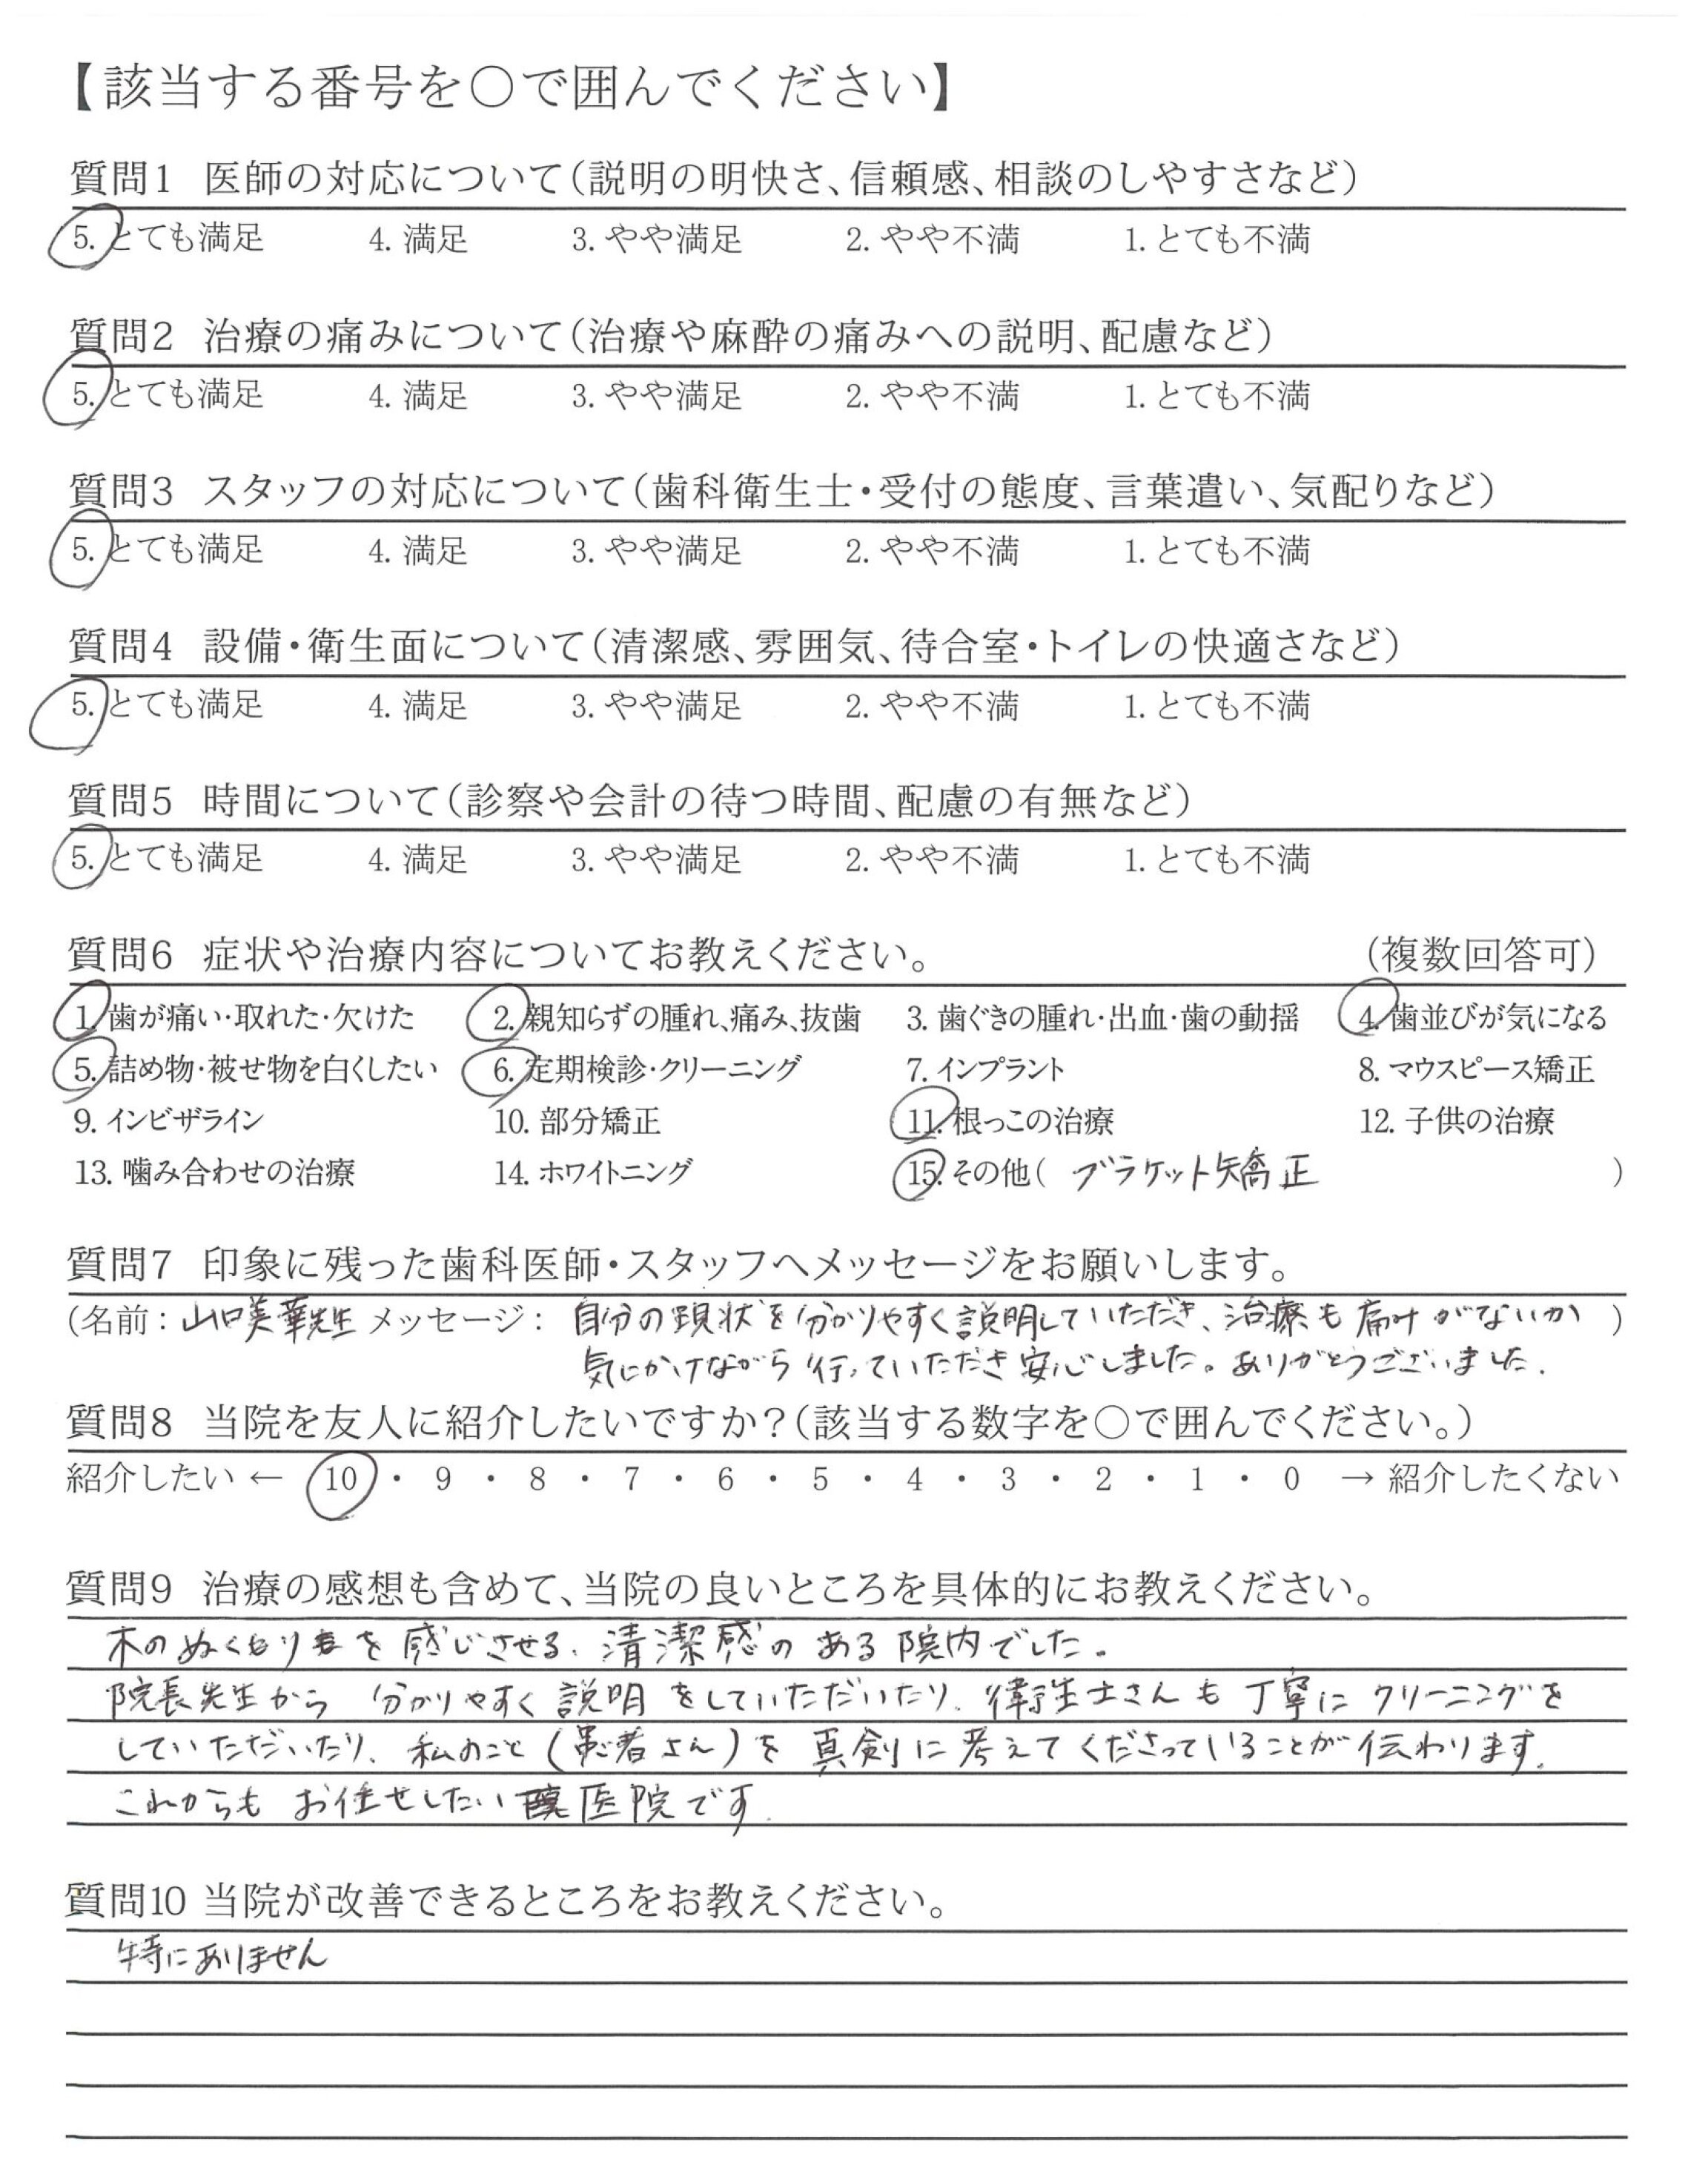 【該当する番号を〇で囲んでください】
質問1 医師の対応について(説明の明快さ、信頼感、相談のしやすさなど)
5. とても満足 4. 満足 3. やや満足 2. やや不満 1. とても不満
質問2 治療の痛みについて(治療や麻酔の痛みへの説明、配慮など)
5. とても満足 4. 満足 3. やや満足 2. やや不満 1. とても不満
質問3 スタッフの対応について(歯科衛生士・受付の態度、言葉遣い、気配りなど)
5. とても満足 4. 満足 3. やや満足 2. やや不満 1. とても不満
質問4 設備・衛生面について(清潔感、雰囲気、待合室・トイレの快適さなど)
5. とても満足 4. 満足 3. やや満足 2. やや不満 1. とても不満
質問5 時間について(診察や会計の待つ時間、配慮の有無など)
5. とても満足 4. 満足 3. やや満足 2. やや不満 1. とても不満
質問6 症状や治療内容についてお教えください。 (複数回答可)
1. 歯が痛い・取れた・欠けた 2. 親知らずの腫れ、痛み、抜歯 3. 歯ぐきの腫れ・出血・歯の動揺 4. 歯並びが気になる
5. 詰め物・被せ物を白くしたい 6. 定期検診・クリーニング 7. インプラント 8. マウスピース矯正
9. インビザライン 10. 部分矯正 11. 根っこの治療 12. 子供の治療
13. 噛み合わせの治療 14. ホワイトニング 15. その他( ブラケット矯正 )
質問7 印象に残った歯科医師・スタッフへメッセージをお願いします。
(名前: 山口美華先生 メッセージ: 自分の現状を分かりやすく説明していただき、治療も痛みがないか )
気にかけながら行っていただき安心しました。ありがとうございました.
質問8 当院を友人に紹介したいですか?(該当する数字を〇で囲んでください。)
紹介したい ← 10 ・ 9 ・ 8 ・ 7 ・ 6 ・ 5 ・ 4 ・ 3 ・ 2 ・ 1 ・ 0 → 紹介したくない
質問9 治療の感想も含めて、当院の良いところを具体的にお教えください。
木のぬくもりを感じさせる、清潔感のある院内でした。
院長先生から 分かりやすく説明をしていただいたり、衛生士さんも丁寧にクリーニングを
していただいたり、私のこと(患者さん)を真剣に考えてくださっていることが伝わります.
これからも お任せしたい医院です.
質問10 当院が改善できるところをお教えください。
特にありません